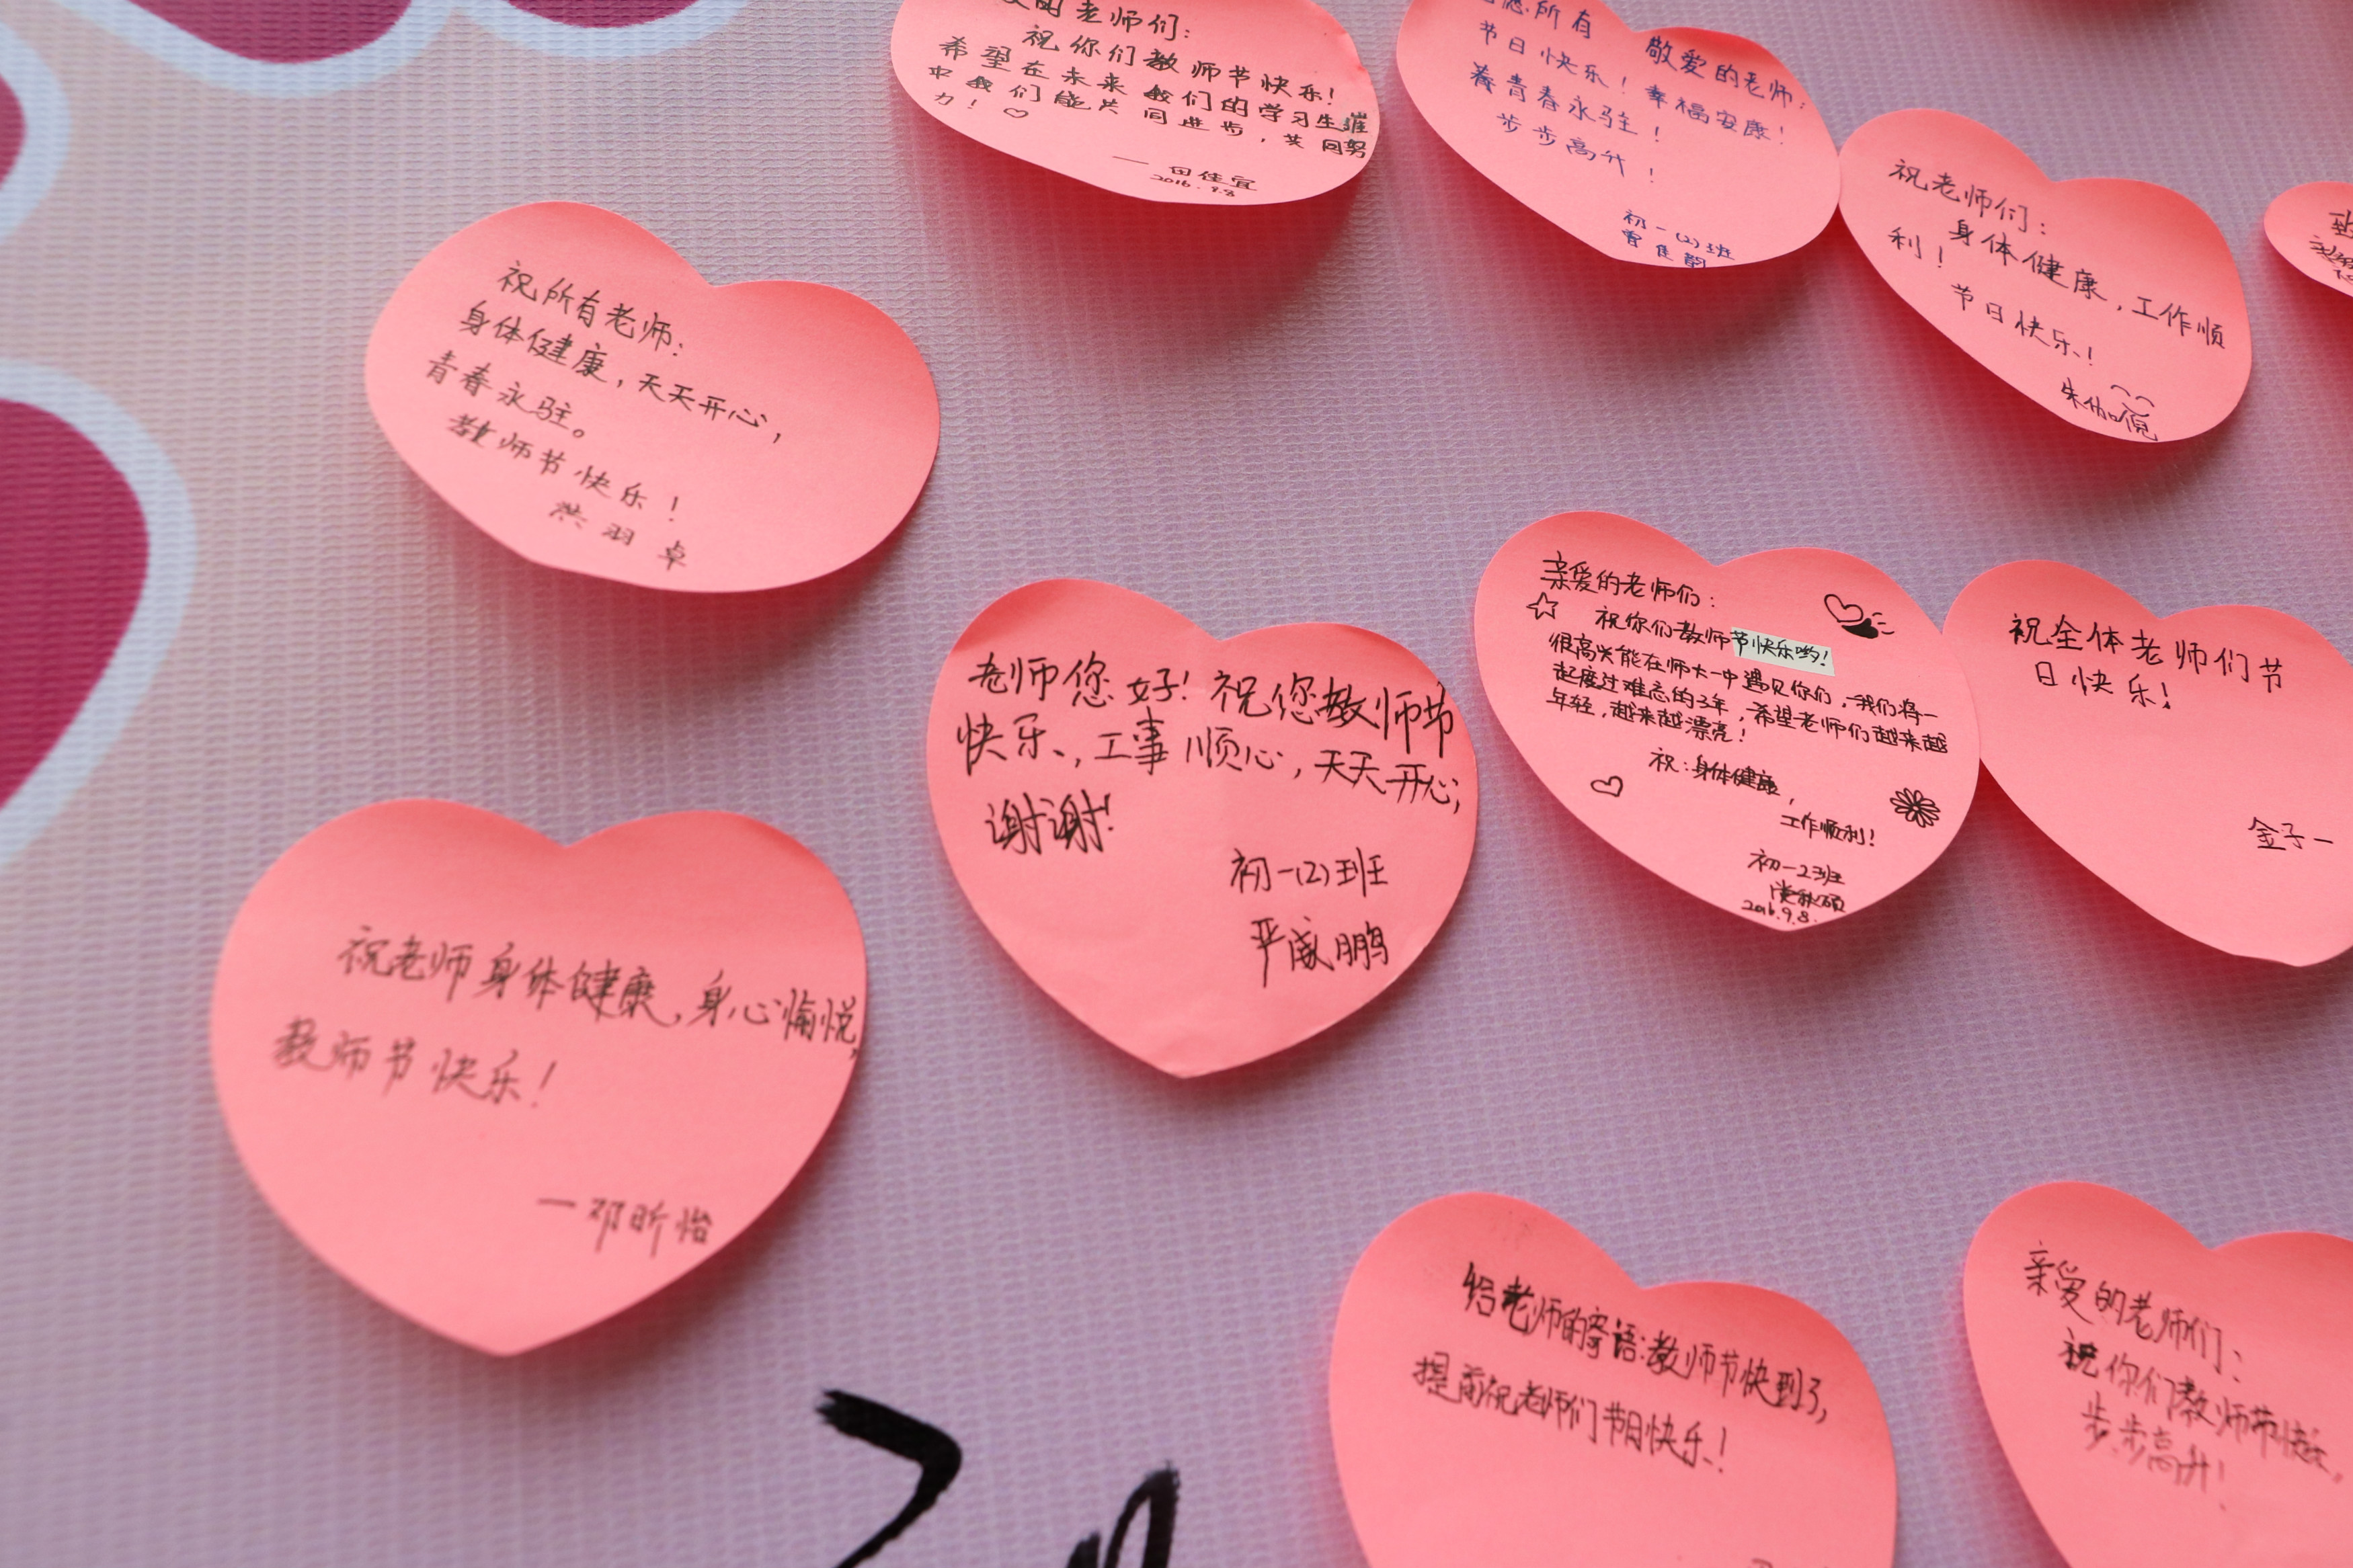 的老师们：
祝你们教师节快乐！
希望在未来我们的学习生涯
中我们能共同进步，共同努
力！♡
——田佳宜
2016.9.8
所有 敬爱的老师：
节日快乐！幸福安康！
青春永驻！
步步高升！
初一(2)班
祝老师们：
身体健康，工作顺
利！
节日快乐！
祝所有老师：
身体健康，天天开心，
青春永驻。
教师节快乐！
洪羽卓
亲爱的老师们：
祝你们教师节快乐哟！
很高兴能在师大一中遇见你们，我们将一
起度过难忘的3年，希望老师们越来越
年轻，越来越漂亮！
祝：身体健康，
工作顺利！
初一2班
2016.9.8.
祝全体老师们节
日快乐！
金子一
老师您好！祝您教师节
快乐，工事顺心，天天开心，
谢谢！
初一(2)班
严威鹏
祝老师身体健康，身心愉悦，
教师节快乐！
—邓昕怡
给老师的寄语：教师节快到了，
提前祝老师们节日快乐！
亲爱的老师们：
祝你们教师节快乐，
步步高升！